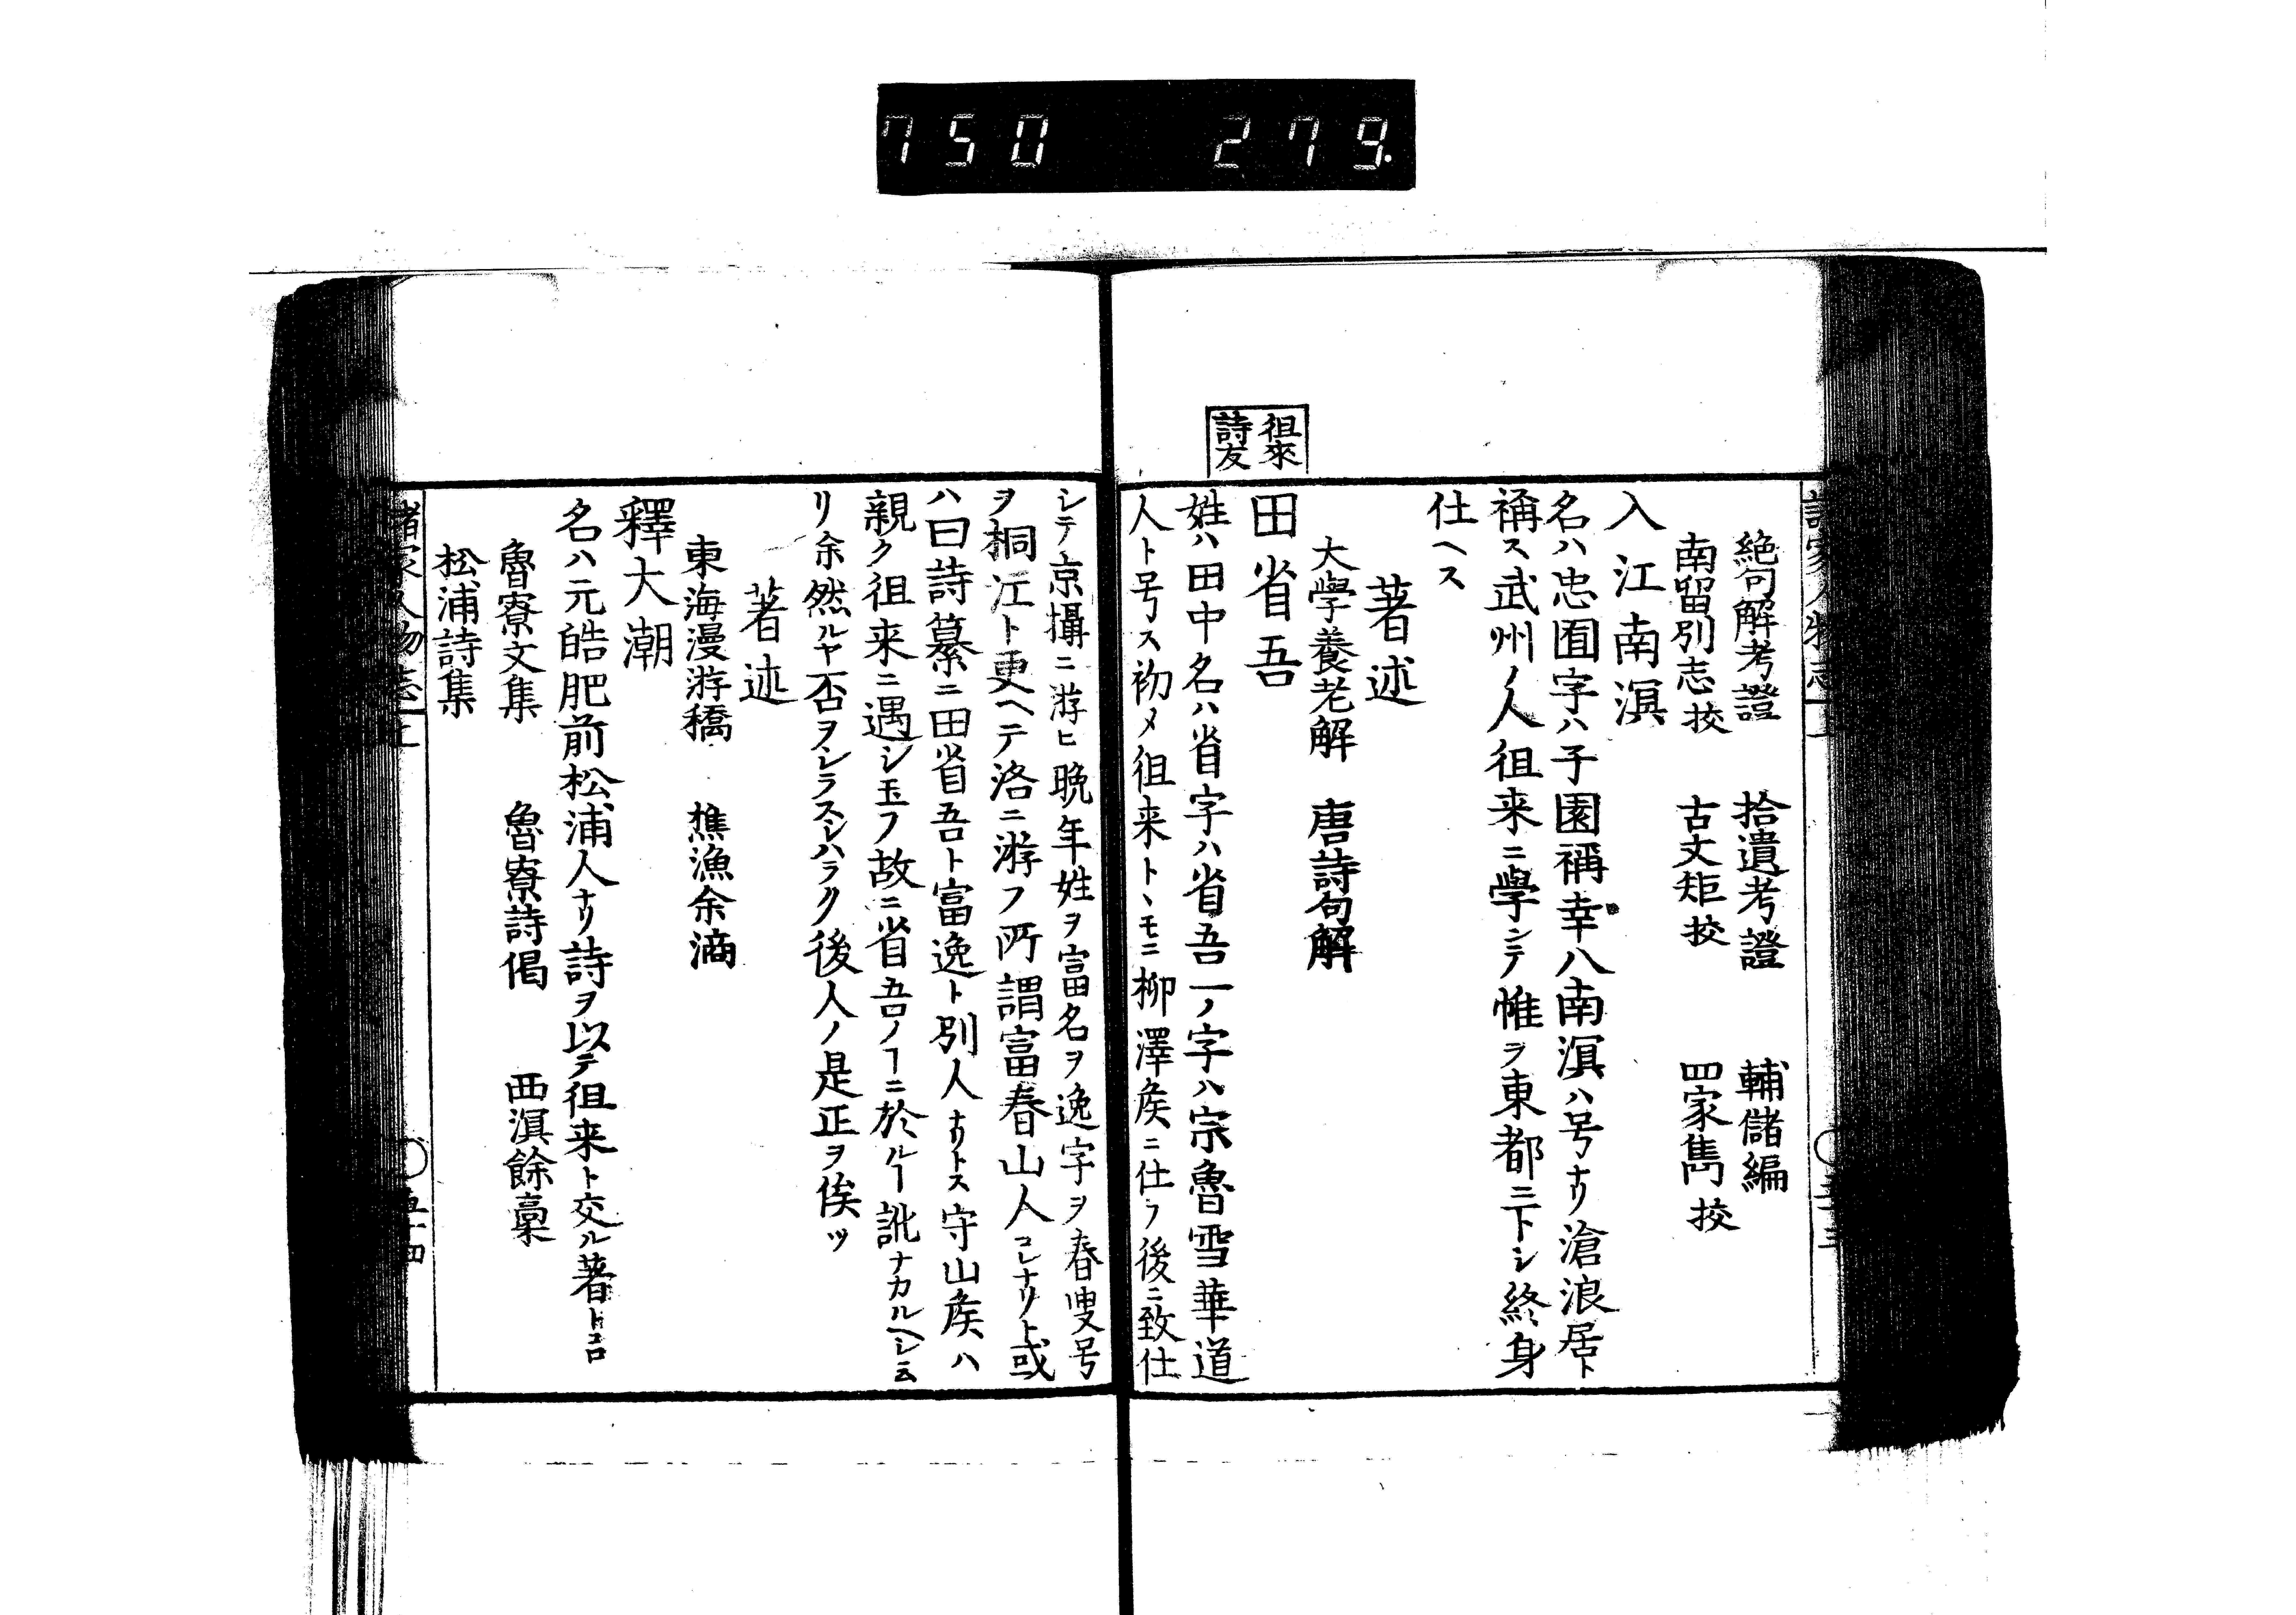 750 279.
諸家人物志 上
絶句解考證 拾遺考證 輔儲編
南留別志挍 古文矩挍 四家雋挍
入江南溟
名ハ忠囿字ハ子園稱幸八南溟ハ号ナリ滄浪居ト
稱ス武州ノ人徂来ニ學ンテ惟ヲ東都ニ下シ終身
仕ヘス
著述
大學養老解 唐詩句解
徂來
詩友
田省吾
姓ハ田中名ハ省字ハ省吾一ノ字ハ宗魯雪華道
人ト号ス初メ徂来トヽモニ柳澤矦ニ仕フ後ニ致仕
シテ京攝ニ游ヒ晩年姓ヲ富名ヲ逸字ヲ春叟号
ヲ桐江ト更ヘテ洛ニ游フ所謂富春山人コレナリト或
ハ曰詩纂ニ田省吾ト富逸ト別人ナリトス守山矦ハ
親ク徂来ニ遇シ玉フ故ニ省吾ノヿニ於ルヿ訛ナカルヘシ云
リ余然ルヤ否ヲシラスシハラク後人ノ是正ヲ俟ツ
著述
東海漫游稿 樵漁余滴
釋大潮
名ハ元皓肥前松浦人ナリ詩ヲ以テ徂来ト交ル著トコロ
魯寮文集 魯寮詩偈 西溟餘稾
松浦詩集
諸家人物志 上 五十四